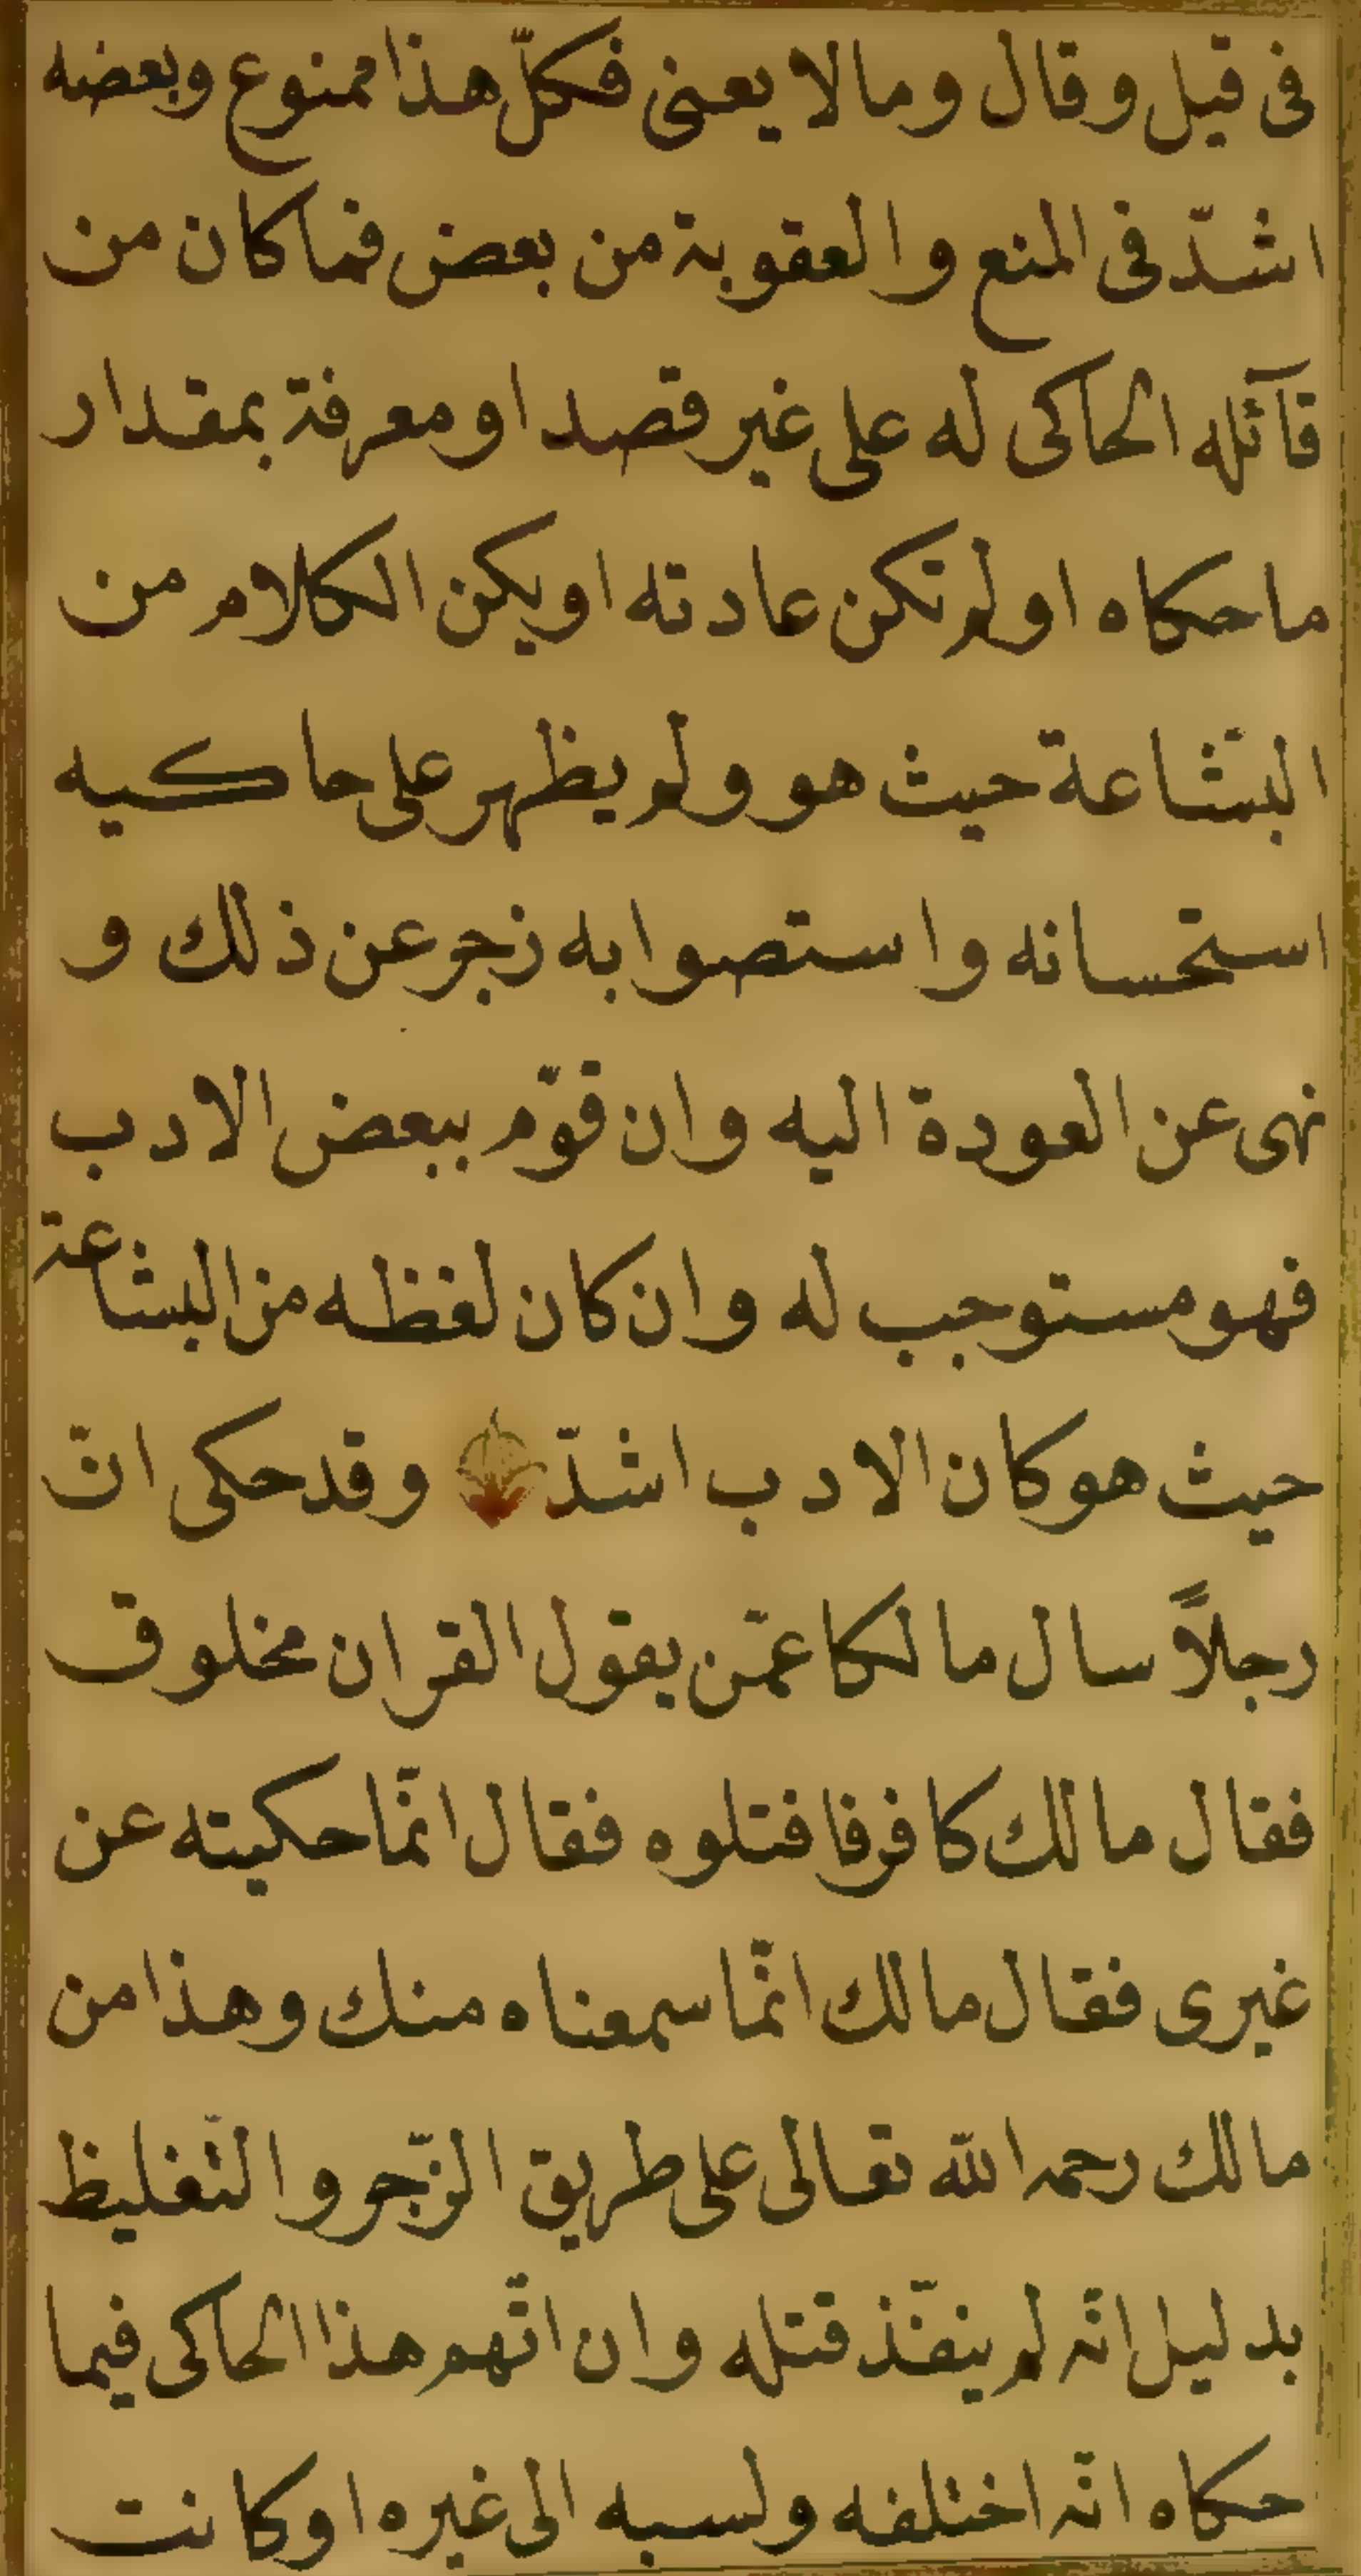 فى قيل وقال ومالا يعنى فكلّ هذا ممنوع وبعضه
اشدّ فى المنع والعقوبة من بعض فما كان من
قآئله الحاكى له على غير قصد او معرفة بمقدار
ما حكاه او لم تكن عادته او يكن الكلام من
البشاعة حيث هو ولم يظهر على حاكيه
استحسانه واستصوابه زجر عن ذلك و
نهى عن العودة اليه وان قوّم ببعض الادب
فهو مستوجب له وان كان لفظه من البشاعة
حيث هو كان الادب اشدّ وقد حكى انّ
رجلاً سال مالكا عمّن يقول القران مخلوق
فقال مالك كافر فاقتلوه فقال انّما حكيته عن
غيرى فقال مالك انّما سمعناه منك وهذا من
مالك رحمه الله تعالى على طريق الزّجر والتّغليظ
بدليل انّه لم ينفّذ قتله وان اتّهم هذا الحاكى فيما
حكاه انّه اختلفه ولسبه الى غيره او كانت